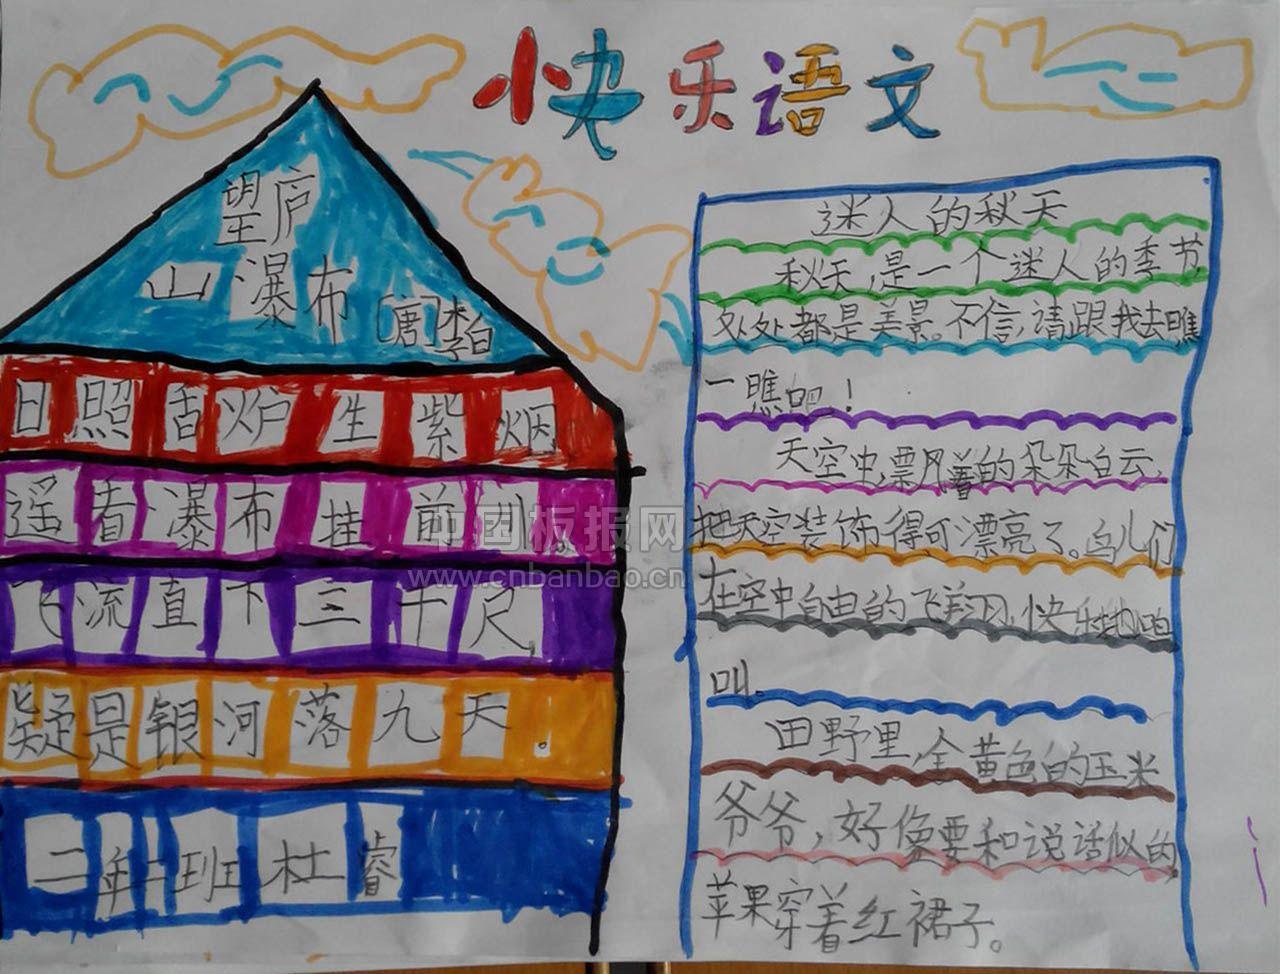 快乐语文
望庐
山瀑布
[唐]李白
日照舌炉生紫烟
遥看瀑布挂前川。
飞流直下三千尺
疑是银河落九天。
二年二班杜睿
迷人的秋天
秋天,是一个迷人的季节
处处都是美景。不信,请跟我去瞧
一瞧吧!
天空中,飘着的朵朵白云,
把天空装饰得可漂亮了。鸟儿们
在空中自由的飞翔,快乐地鸣
叫。
田野里,金黄色的玉米
爷爷,好像要和说话似的,
苹果穿着红裙子。
中国板报网
www.cnbanbao.cn